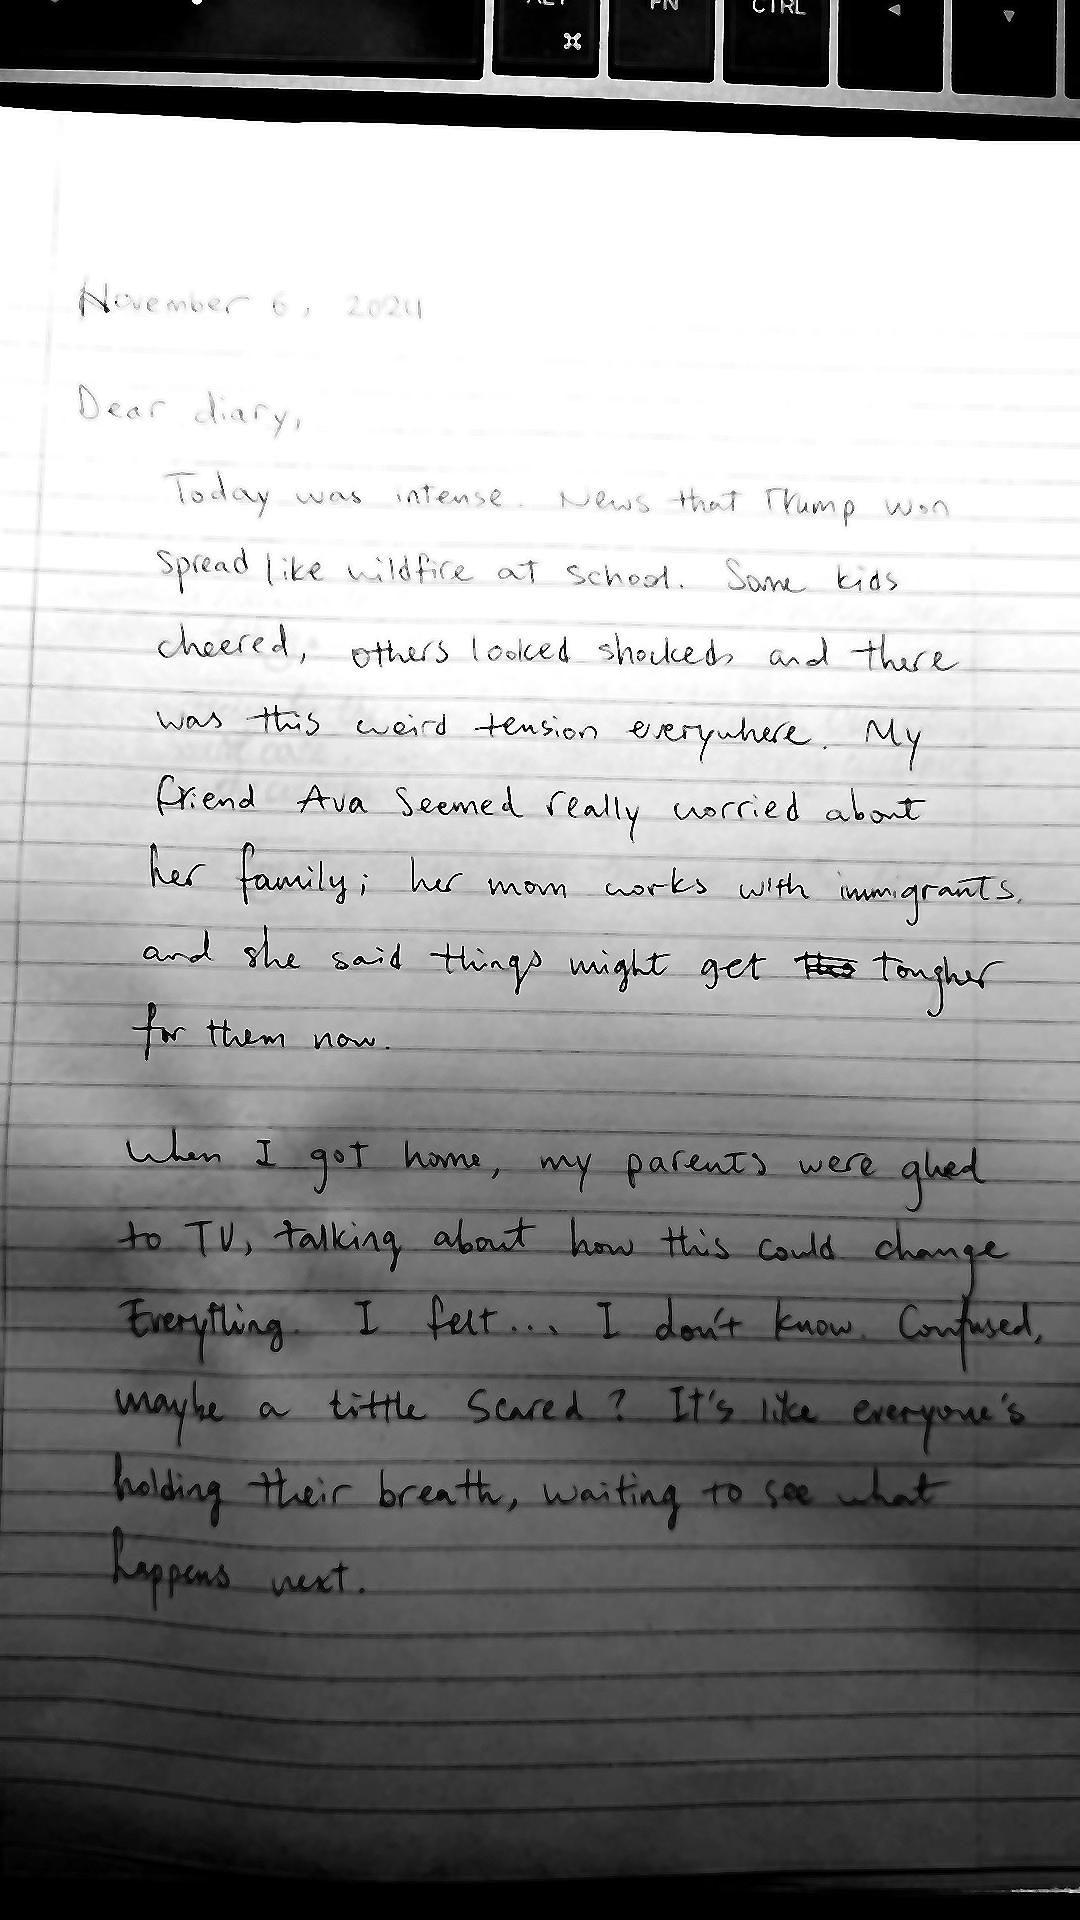 FN
CTRL
⌘
◄
▼
November 6, 2024
Dear diary,
Today was intense. News that Trump won
spread like wildfire at school. Some kids
cheered, others looked shocked, and there
was this weird tension everywhere. My
friend Ava seemed really worried about
her family; her mom works with immigrants.
and she said things might get tougher
for them now.
When I got home, my parents were glued
to TV, talking about how this could change
Everything. I felt... I don't know. Confused,
maybe a little scared? It's like everyone's
holding their breath, waiting to see what
happens next.